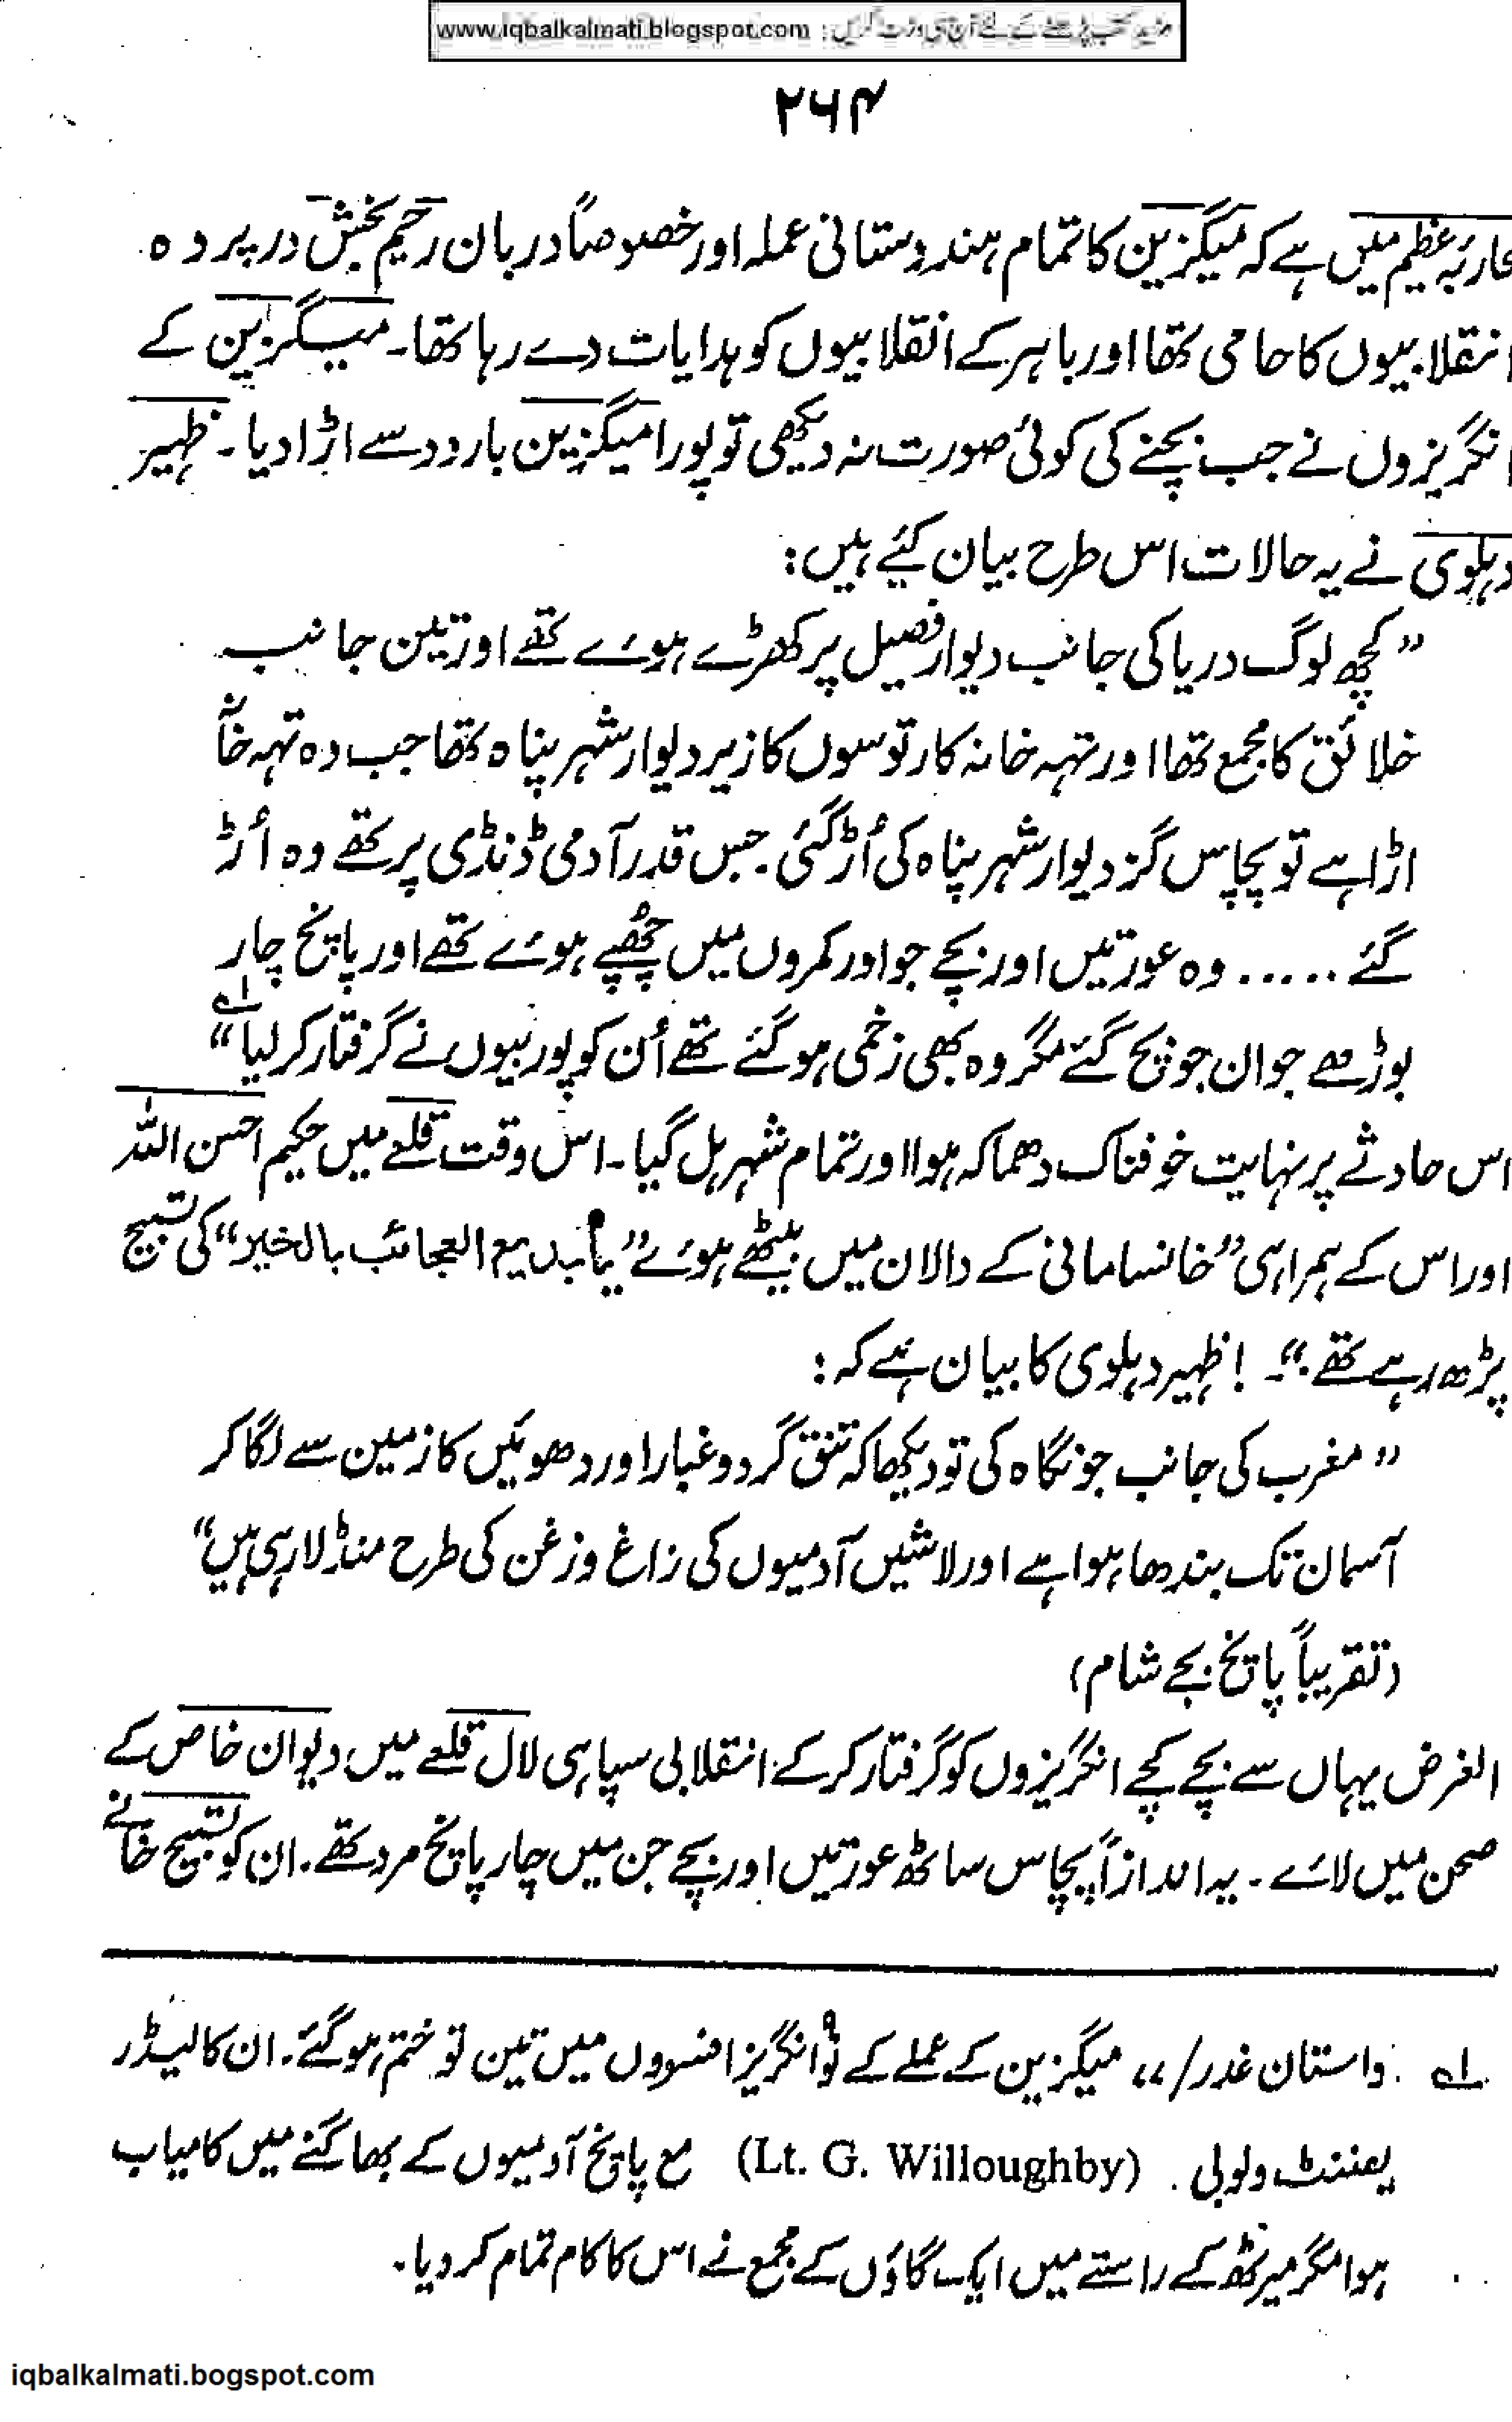 www.iqbalkalmati.blogspot.com : مزید کتب پڑھنے کے لئے آج ہی وزٹ کریں
۲۶۴
محاربہ عظیم میں ہے کہ میگزین کا تمام ہندوستانی عملہ اور خصوصاً دربان رحیم بخش در پردہ
انقلابیوں کا حامی تھا اور باہر کے انقلابیوں کو ہدایات دے رہا تھا۔ میگزین کے
انگریزوں نے جب بچنے کی کوئی صورت نہ دیکھی تو پورا میگزین بارود سے اڑا دیا۔ ظہیر
دہلوی نے یہ حالات اس طرح بیان کئے ہیں:
”کچھ لوگ دریا کی جانب دیوار فصیل پر کھڑے ہوئے تھے اور تین جانب
خلائق کا مجمع تھا اور تہہ خانہ کارتوسوں کا زیر دیوار شہر پناہ تھا جب وہ تہہ خانہ
اڑا ہے تو پچاس گز دیوار شہر پناہ کی اُڑ گئی۔ جس قدر آدمی ڈنڈی پر تھے وہ اُڑ
گئے ..... وہ عورتیں اور بچے جو اور کمروں میں چُھپے ہوئے تھے اور پانچ چار
بوڑھے جوان جو بچ گئے مگر وہ بھی زخمی ہو گئے تھے اُن کو پوربیوں نے گرفتار کر لیا“ ؎۱
اس حادثے پر نہایت خوفناک دھماکہ ہوا اور تمام شہر ہل گیا۔ اس وقت قلعے میں حکیم احسن اللہ
اور اس کے ہمراہی ”خانسامانی کے دالان میں بیٹھے ہوئے ”یا بدیع العجائب بالخیر“ کی تسبیح
پڑھ رہے تھے“۔ ! ظہیر دہلوی کا بیان ہے کہ:
”مغرب کی جانب جو نگاہ کی تو دیکھا کہ تتق گرد و غبار اور دھوئیں کا زمین سے لگا کر
آسمان تک بندھا ہوا ہے اور لاشیں آدمیوں کی زاغ و زغن کی طرح منڈلا رہی ہیں“
(تقریباً پانچ بجے شام)
الغرض یہاں سے بچے کچے انگریزوں کو گرفتار کر کے انقلابی سپاہی لال قلعے میں دیوان خاص کے
صحن میں لائے۔ یہ اندازاً پچاس ساٹھ عورتیں اور بچے جن میں چار پانچ مرد تھے۔ ان کو تسبیح خانے
؎۱ داستان غدر/ ،، میگزین کے عملے کے نو ۹ انگریز افسروں میں تین تو ختم ہو گئے۔ ان کا لیڈر
یفننٹ ولوبی (Lt. G. Willoughby) مع پانچ آدمیوں کے بھاگنے میں کامیاب
ہوا مگر میرٹھ کے راستے میں ایک گاؤں کے مجمع نے اس کا کام تمام کر دیا۔
iqbalkalmati.bogspot.com